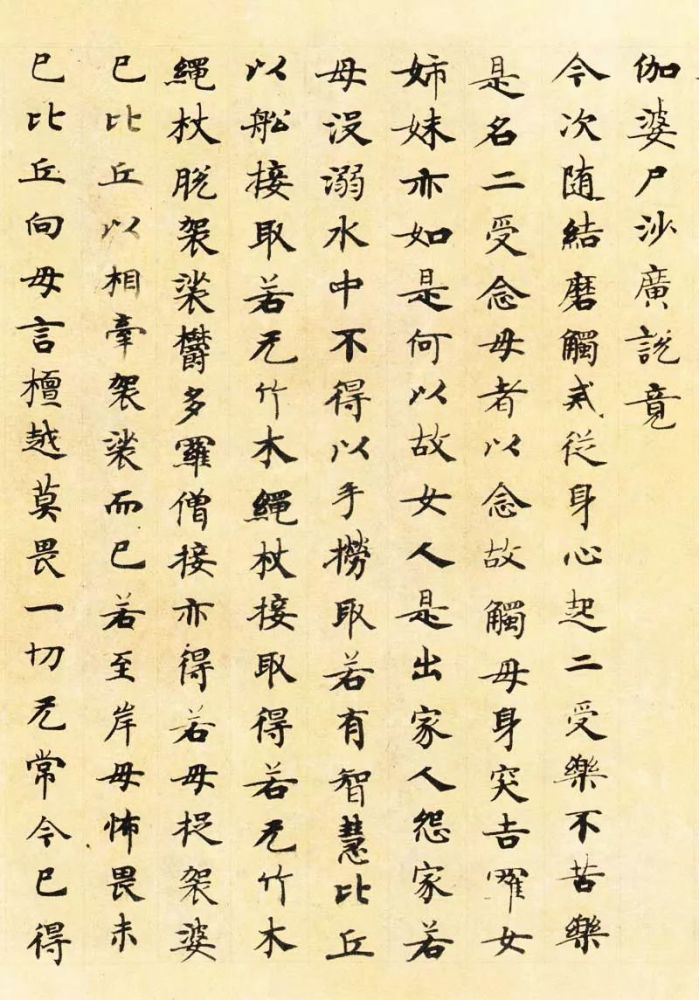 伽婆尸沙廣説竟
今次随結磨觸戒從身心起二受樂不苦樂
是名二受念母者以念故觸母身突吉羅女
姉妹亦如是何以故女人是出家人怨家若
母没溺水中不得以手撈取若有智慧比丘
以舩接取若无竹木繩杖接取得若无竹木
繩杖脱袈裟欝多羅僧接亦得若母捉袈婆
已比丘以相牽袈裟而已若至岸母怖畏未
已比丘向母言檀越莫畏一切无常今已得